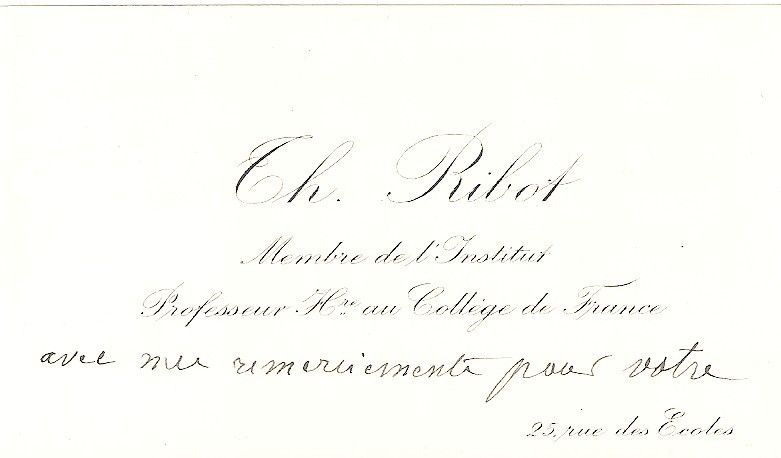 Th. Ribot
Membre de l'Institut
Professeur Hre au Collège de France
avec mes remerciements pour votre
25, rue des Ecoles